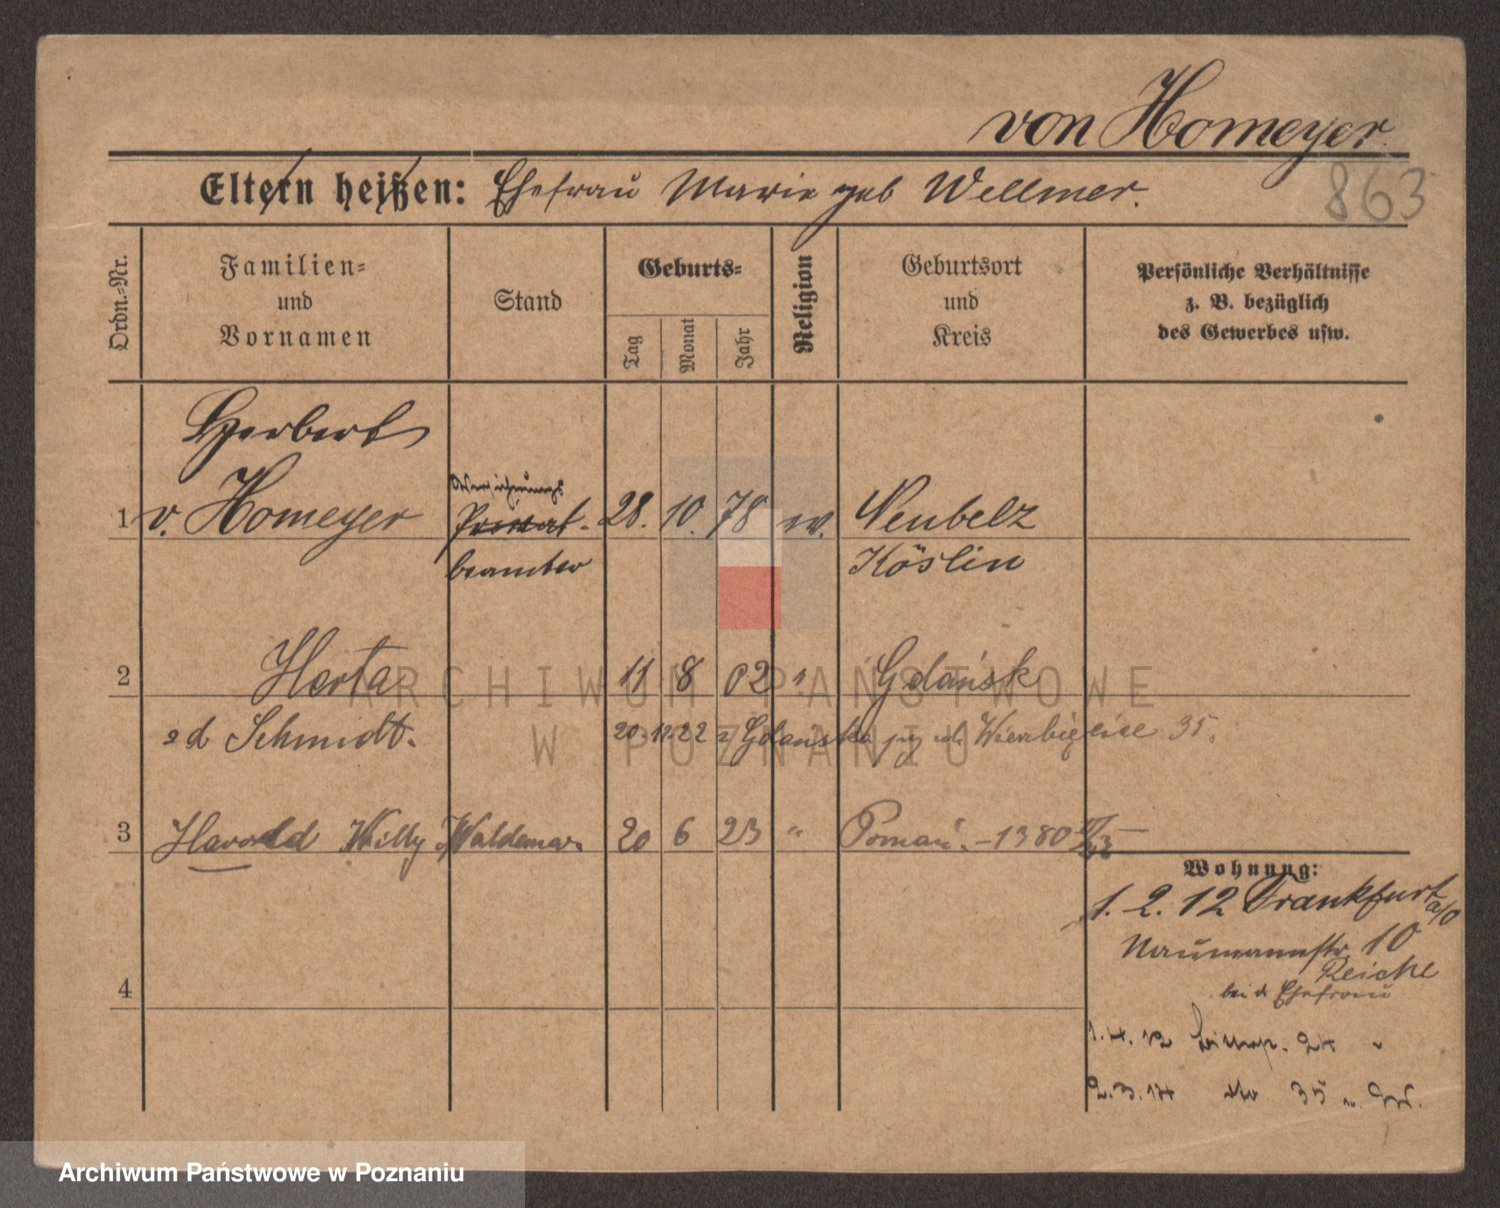 von Homeyer.
863
Eltern heißen: Ehefrau Marie geb Wellmer.
Ordn.-Nr.
Familien-
und
Vornamen
Stand
Geburts-
Tag
Monat
Jahr
Religion
Geburtsort
und
Kreis
Persönliche Verhältnisse
z. B. bezüglich
des Gewerbes usw.
Herbert
1 v. Homeyer Privat- 28. 10. 78 ev. Neubelz
beamter Köslin
2 Herta 11 8 02 " Gdańsk
zd Schmidt. 20.11.22 z Gdańska 35.
3 Harald Willy Waldemar 20 6 23 " Poznań. - 1380
Wohnung:
1. 2. 12 Frankfurt a/O
Naumannstr. 10
Reiche
bei d Ehefrau
4
1.4.12 24 "
2.3.14 35 "
ARCHIWUM PAŃSTWOWE
W POZNANIU
Archiwum Państwowe w Poznaniu